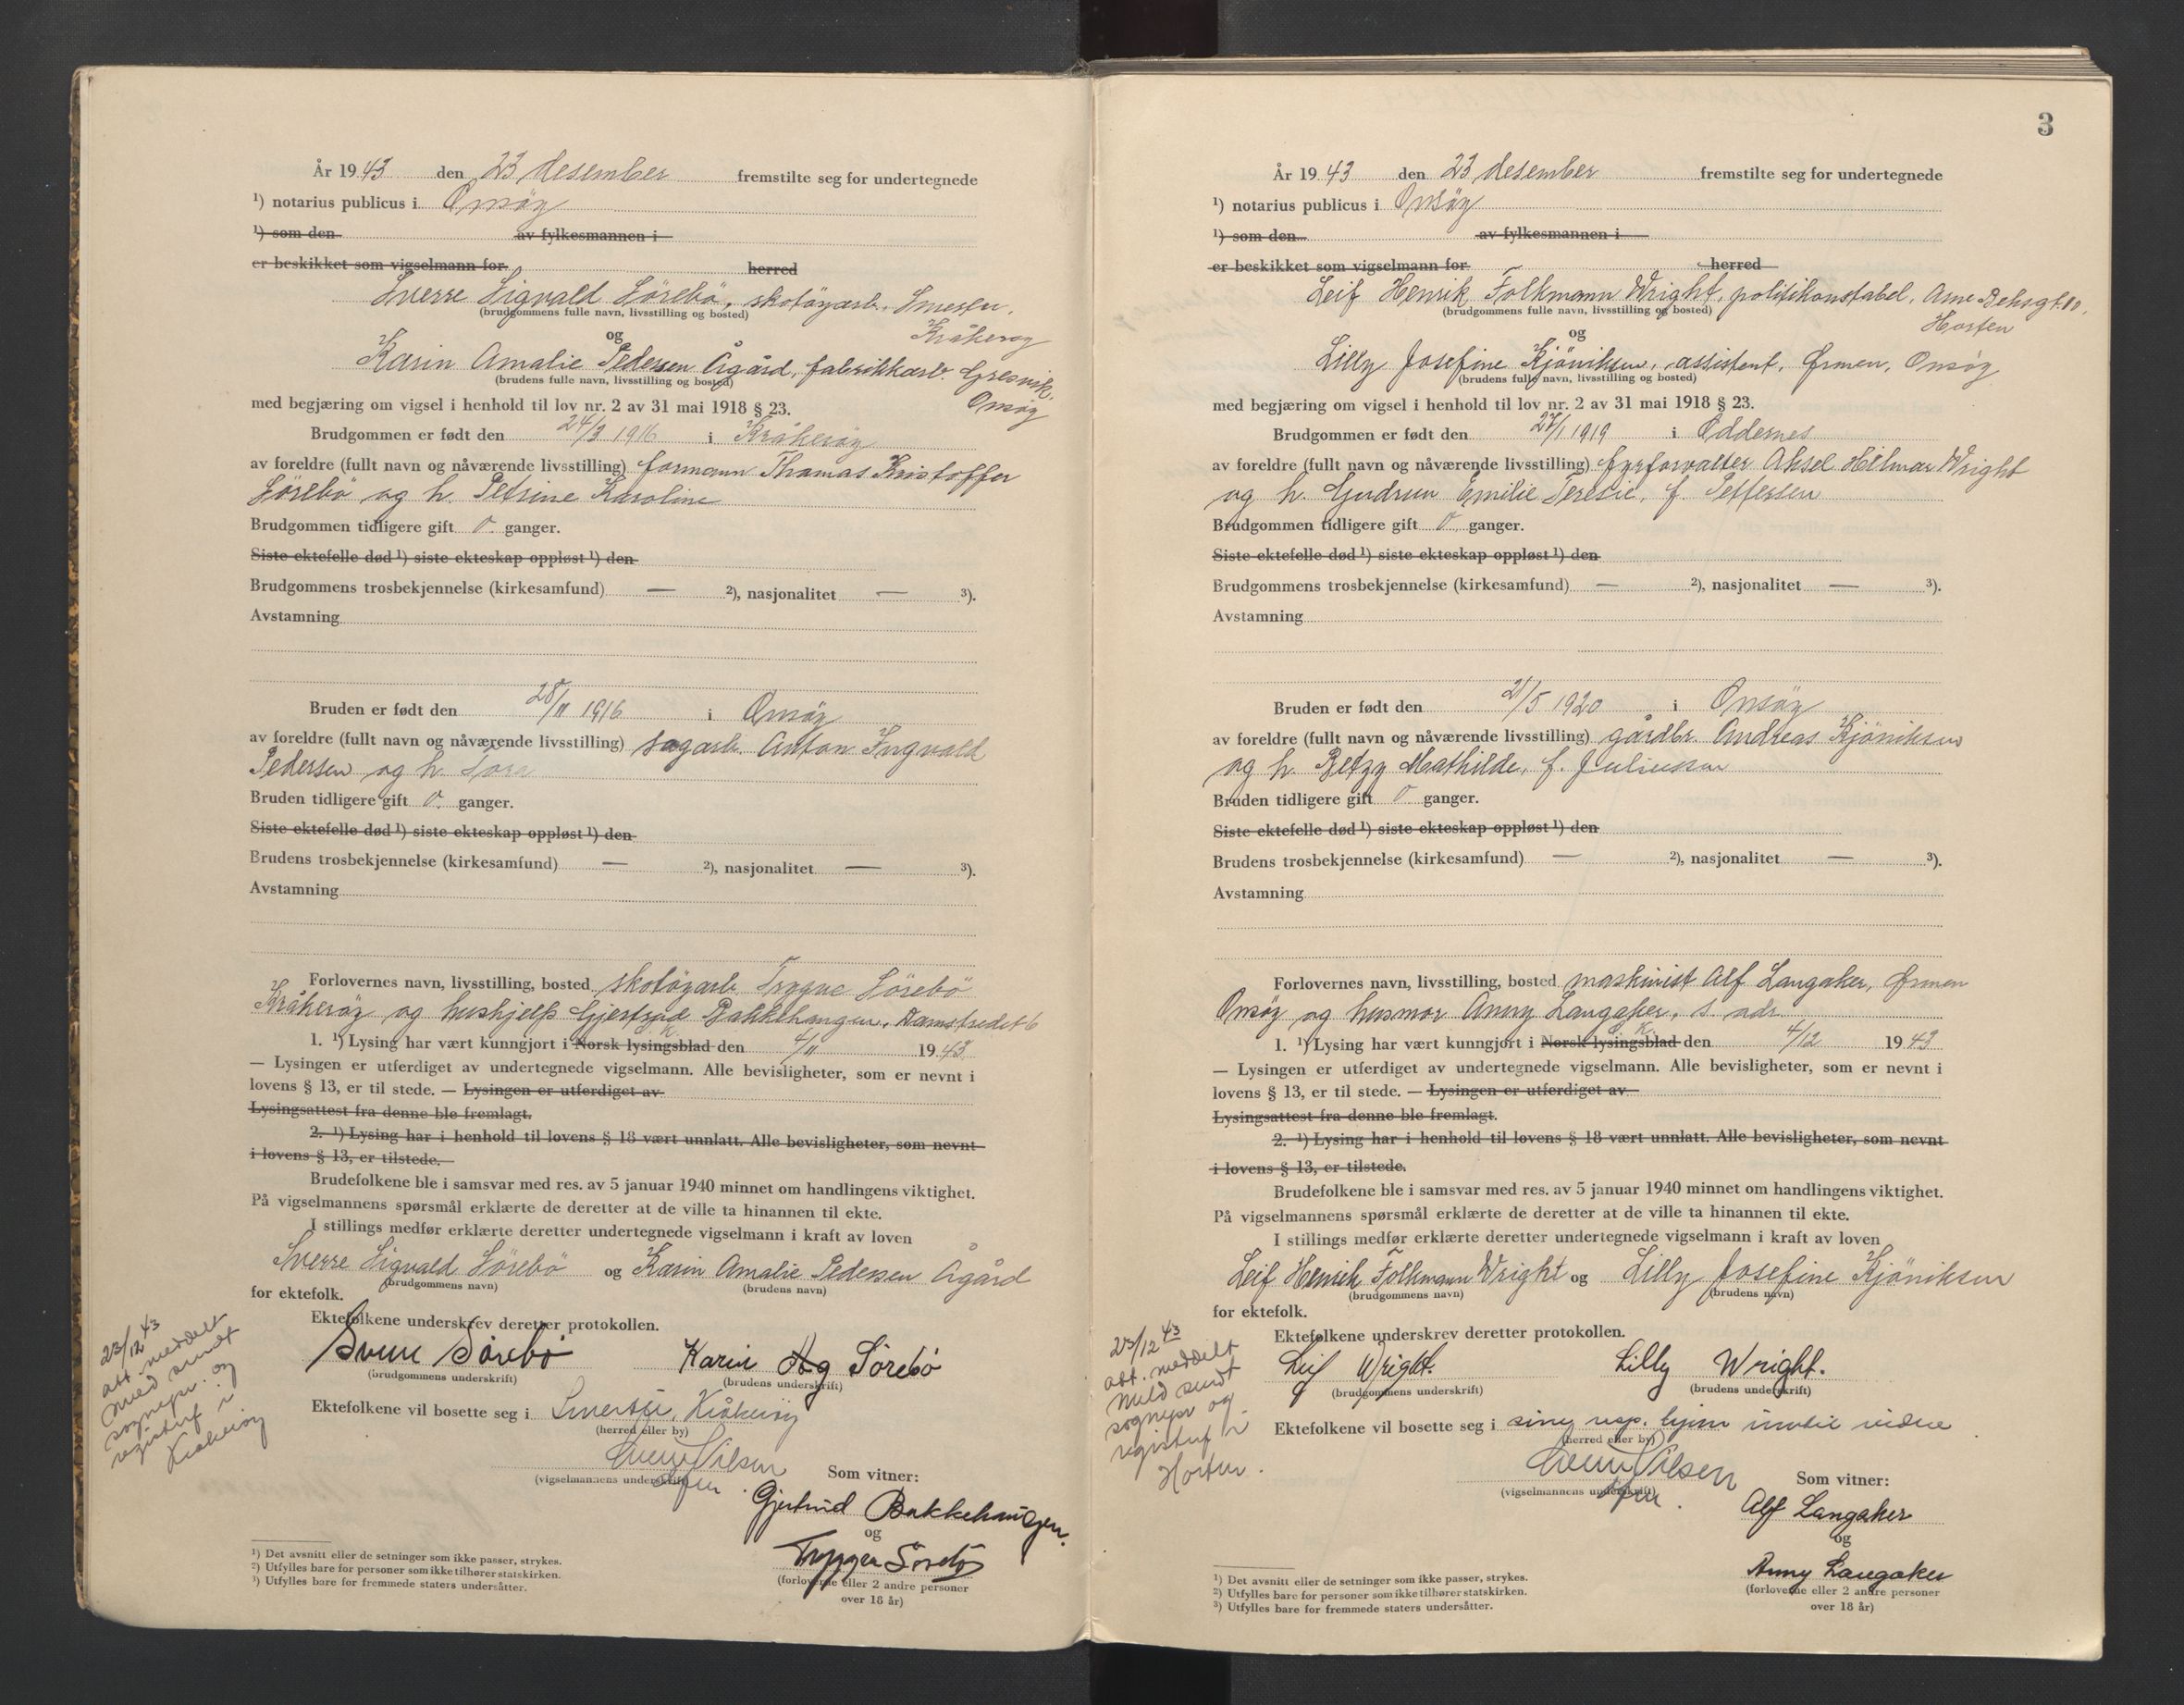 År 1943 den 23 desember fremstilte seg for undertegnede
¹) notarius publicus i Onsöy
¹) som den av fylkesmannen i
er beskikket som vigselmann for herred
Sverre Sigvald Sörebö, skotöyarb. Smertu,
(brudgommens fulle navn, livsstilling og bosted)
Kråkeröy
og
Karin Amalie Pedersen Ågård, fabrikkarb. Gresvik,
(brudens fulle navn, livsstilling og bosted)
Onsöy
med begjæring om vigsel i henhold til lov nr. 2 av 31 mai 1918 § 23.
Brudgommen er født den 24/3 1916 i Kråkeröy
av foreldre (fullt navn og nåværende livsstilling) formann Thomas Kristoffer
Sörebö og h. Petrine Karoline
Brudgommen tidligere gift 0 ganger.
Siste ektefelle død ¹) siste ekteskap oppløst ¹) den
Brudgommens trosbekjennelse (kirkesamfund) — ²), nasjonalitet — ³).
Avstamning
Bruden er født den 28/11 1916 i Onsöy
av foreldre (fullt navn og nåværende livsstilling) sagarb. Anton Ingvald
Pedersen og h. Tora
Bruden tidligere gift 0. ganger.
Siste ektefelle død ¹) siste ekteskap oppløst ¹) den
Brudens trosbekjennelse (kirkesamfund) — ²), nasjonalitet — ³).
Avstamning
Forlovernes navn, livsstilling, bosted skotöyarb. Trygve Sörebö
Kråkeröy og hushjelp Gjertrud Bakkehaugen, Damstredet 6
1. ¹) Lysing har vært kunngjort i Norsk lysingsblad K. den 4/11 1943
— Lysingen er utferdiget av undertegnede vigselmann. Alle bevisligheter, som er nevnt i
lovens § 13, er til stede. — Lysingen er utferdiget av
Lysingsattest fra denne ble fremlagt.
2. ¹) Lysing har i henhold til lovens § 18 vært unnlatt. Alle bevisligheter, som nevnt
i lovens § 13, er tilstede.
Brudefolkene ble i samsvar med res. av 5 januar 1940 minnet om handlingens viktighet.
På vigselmannens spørsmål erklærte de deretter at de ville ta hinannen til ekte.
I stillings medfør erklærte deretter undertegnede vigselmann i kraft av loven
Sverre Sigvald Sörebö og Karin Amalie Pedersen Ågård
(brudgommens navn) (brudens navn)
for ektefolk.
Ektefolkene underskrev deretter protokollen.
Sverre Sörebö Karin Åg Sörebö
(brudgommens underskrift) (brudens underskrift)
Ektefolkene vil bosette seg i Smertu, Kråkeröy
(herred eller by)
Nilsen
(vigselmannens underskrift)
Som vitner:
Gjertrud Bakkehaugen.
og
Trygve Sörebö
(forloverne eller 2 andre personer
over 18 år)
23/12 43
att. meddelt
Meld sendt
sognepr. og
registerf i
Kråkeröy
¹) Det avsnitt eller de setninger som ikke passer, strykes.
²) Utfylles bare for personer som ikke tilhører statskirken.
³) Utfylles bare for fremmede staters undersåtter.
3
År 1943 den 23 desember fremstilte seg for undertegnede
¹) notarius publicus i Onsöy
¹) som den av fylkesmannen i
er beskikket som vigselmann for herred
Leif Henrik Folkmann Wright, politikonstabel, Arne Behsgt. 10,
(brudgommens fulle navn, livsstilling og bosted)
Horten
og
Lilly Josefine Kjöniksen, assistent, Ørmen, Onsöy
(brudens fulle navn, livsstilling og bosted)
med begjæring om vigsel i henhold til lov nr. 2 av 31 mai 1918 § 23.
Brudgommen er født den /1 1919 i Oddernes
av foreldre (fullt navn og nåværende livsstilling) fyrforvalter Aksel Hilmar Wright
og h. Gudrun Emilie Teresie, f. Pettersen
Brudgommen tidligere gift 0 ganger.
Siste ektefelle død ¹) siste ekteskap oppløst ¹) den
Brudgommens trosbekjennelse (kirkesamfund) — ²), nasjonalitet — ³).
Avstamning
Bruden er født den 21/5 1920 i Onsöy
av foreldre (fullt navn og nåværende livsstilling) gårdbr. Andreas Kjöniksen
og h. Betzy Mathilde, f. Juliussen
Bruden tidligere gift 0 ganger.
Siste ektefelle død ¹) siste ekteskap oppløst ¹) den
Brudens trosbekjennelse (kirkesamfund) — ²), nasjonalitet — ³).
Avstamning
Forlovernes navn, livsstilling, bosted maskinist Alf Langaker, Ørmen
Onsöy og husmor Anny Langaker, s. adr.
1. ¹) Lysing har vært kunngjort i Norsk lysingsblad K. den 4/12 1943
— Lysingen er utferdiget av undertegnede vigselmann. Alle bevisligheter, som er nevnt i
lovens § 13, er til stede. — Lysingen er utferdiget av
Lysingsattest fra denne ble fremlagt.
2. ¹) Lysing har i henhold til lovens § 18 vært unnlatt. Alle bevisligheter, som nevnt
i lovens § 13, er tilstede.
Brudefolkene ble i samsvar med res. av 5 januar 1940 minnet om handlingens viktighet.
På vigselmannens spørsmål erklærte de deretter at de ville ta hinannen til ekte.
I stillings medfør erklærte deretter undertegnede vigselmann i kraft av loven
Leif Henrik Folkmann Wright og Lilly Josefine Kjöniksen
(brudgommens navn) (brudens navn)
for ektefolk.
Ektefolkene underskrev deretter protokollen.
Leif Wright. Lilly Wright.
(brudgommens underskrift) (brudens underskrift)
Ektefolkene vil bosette seg i sine resp. hjem inntil videre
(herred eller by)
Nilsen
(vigselmannens underskrift)
Som vitner:
Alf Langaker
og
Anny Langaker
(forloverne eller 2 andre personer
over 18 år)
23/12 43
att. meddelt
Meld sendt
sognepr og
registerf i
Horten.
¹) Det avsnitt eller de setninger som ikke passer, strykes.
²) Utfylles bare for personer som ikke tilhører statskirken.
³) Utfylles bare for fremmede staters undersåtter.